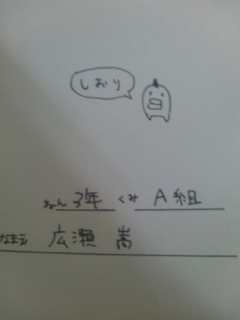 しおり
ねん 3年 くみ A組
なまえ 広瀬 嵩